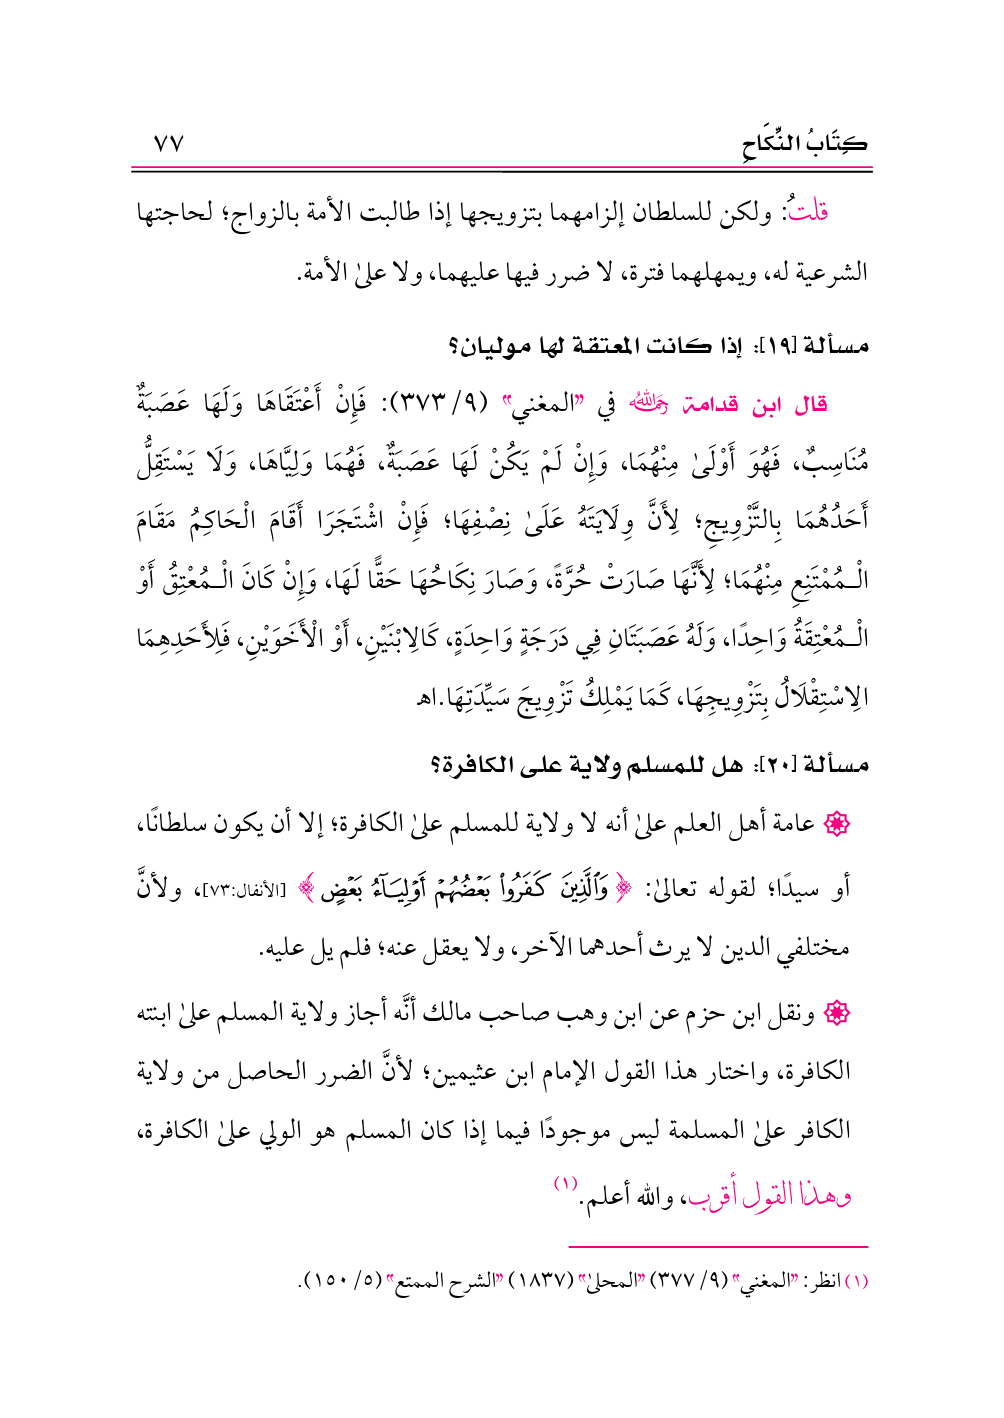 كِتَابُ النِّكَاحِ ٧٧
قلتُ: ولكن للسلطان إلزامهما بتزويجها إذا طالبت الأمة بالزواج؛ لحاجتها
الشرعية له، ويمهلهما فترة، لا ضرر فيها عليهما، ولا علىٰ الأمة.
مسألة [١٩]: إذا كانت المعتقة لها موليان؟
قال ابن قدامة رحمه الله في "المغني" (٩/ ٣٧٣): فَإِنْ أَعْتَقَاهَا وَلَهَا عَصَبَةٌ
مُنَاسِبٌ، فَهُوَ أَوْلَىٰ مِنْهُمَا، وَإِنْ لَمْ يَكُنْ لَهَا عَصَبَةٌ، فَهُمَا وَلِيَّاهَا، وَلَا يَسْتَقِلُّ
أَحَدُهُمَا بِالتَّزْوِيجِ؛ لِأَنَّ وِلَايَتَهُ عَلَىٰ نِصْفِهَا؛ فَإِنْ اشْتَجَرَا أَقَامَ الْحَاكِمُ مَقَامَ
الْـمُمْتَنِعِ مِنْهُمَا؛ لِأَنَّهَا صَارَتْ حُرَّةً، وَصَارَ نِكَاحُهَا حَقًّا لَهَا، وَإِنْ كَانَ الْـمُعْتِقُ أَوْ
الْـمُعْتِقَةُ وَاحِدًا، وَلَهُ عَصَبَتَانِ فِي دَرَجَةٍ وَاحِدَةٍ، كَالِابْنَيْنِ، أَوْ الْأَخَوَيْنِ، فَلِأَحَدِهِمَا
الِاسْتِقْلَالُ بِتَزْوِيجِهَا، كَمَا يَمْلِكُ تَزْوِيجَ سَيِّدَتِهَا.اﻫ
مسألة [٢٠]: هل للمسلم ولاية على الكافرة؟
عامة أهل العلم علىٰ أنه لا ولاية للمسلم علىٰ الكافرة؛ إلا أن يكون سلطانًا،
أو سيدًا؛ لقوله تعالىٰ: ﴿وَٱلَّذِينَ كَفَرُواْ بَعۡضُهُمۡ أَوۡلِيَآءُ بَعۡضٍ﴾ [الأنفال:٧٣]، ولأنَّ
مختلفي الدين لا يرث أحدهما الآخر، ولا يعقل عنه؛ فلم يل عليه.
ونقل ابن حزم عن ابن وهب صاحب مالك أنَّه أجاز ولاية المسلم علىٰ ابنته
الكافرة، واختار هذا القول الإمام ابن عثيمين؛ لأنَّ الضرر الحاصل من ولاية
الكافر علىٰ المسلمة ليس موجودًا فيما إذا كان المسلم هو الولي علىٰ الكافرة،
وهذا القول أقرب، والله أعلم.(١)
(١) انظر: "المغني" (٩/ ٣٧٧) "المحلىٰ" (١٨٣٧) "الشرح الممتع" (٥/ ١٥٠).